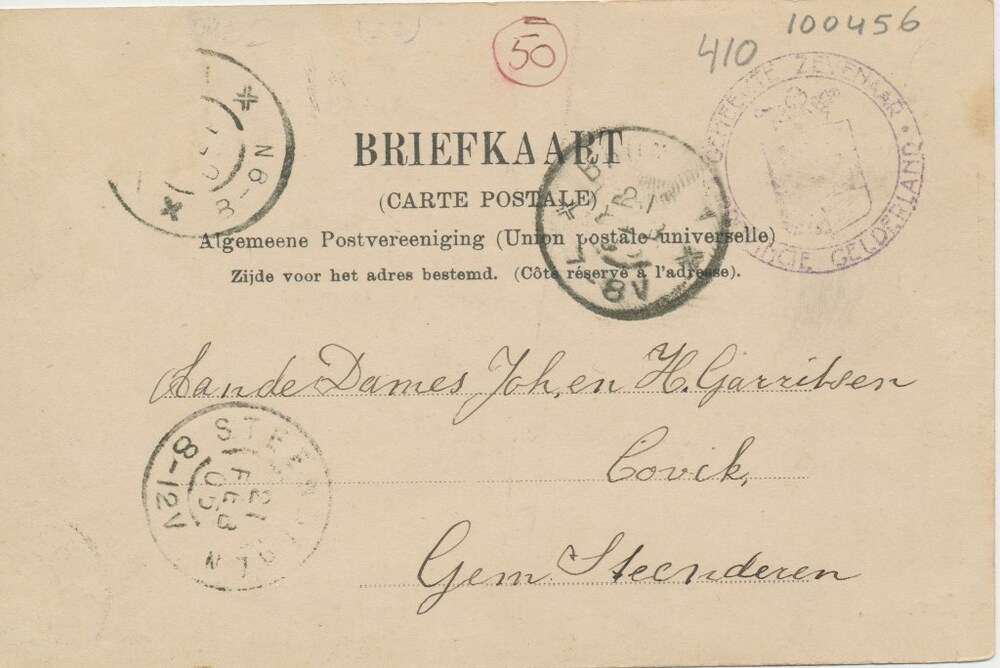 100456
410
50
GEMEENTE ZEVENAAR • PROVINCIE GELDERLAND
N8-8
BRIEFKAART
(CARTE POSTALE)
Algemeene Postvereeniging (Union postale universelle)
Zijde voor het adres bestemd. (Côté réservé à l'adresse).
21
-8V
Aan de Dames Joh, en H. Garritsen
Covik,
Gem. Steenderen
8-12V
21
FEB
05